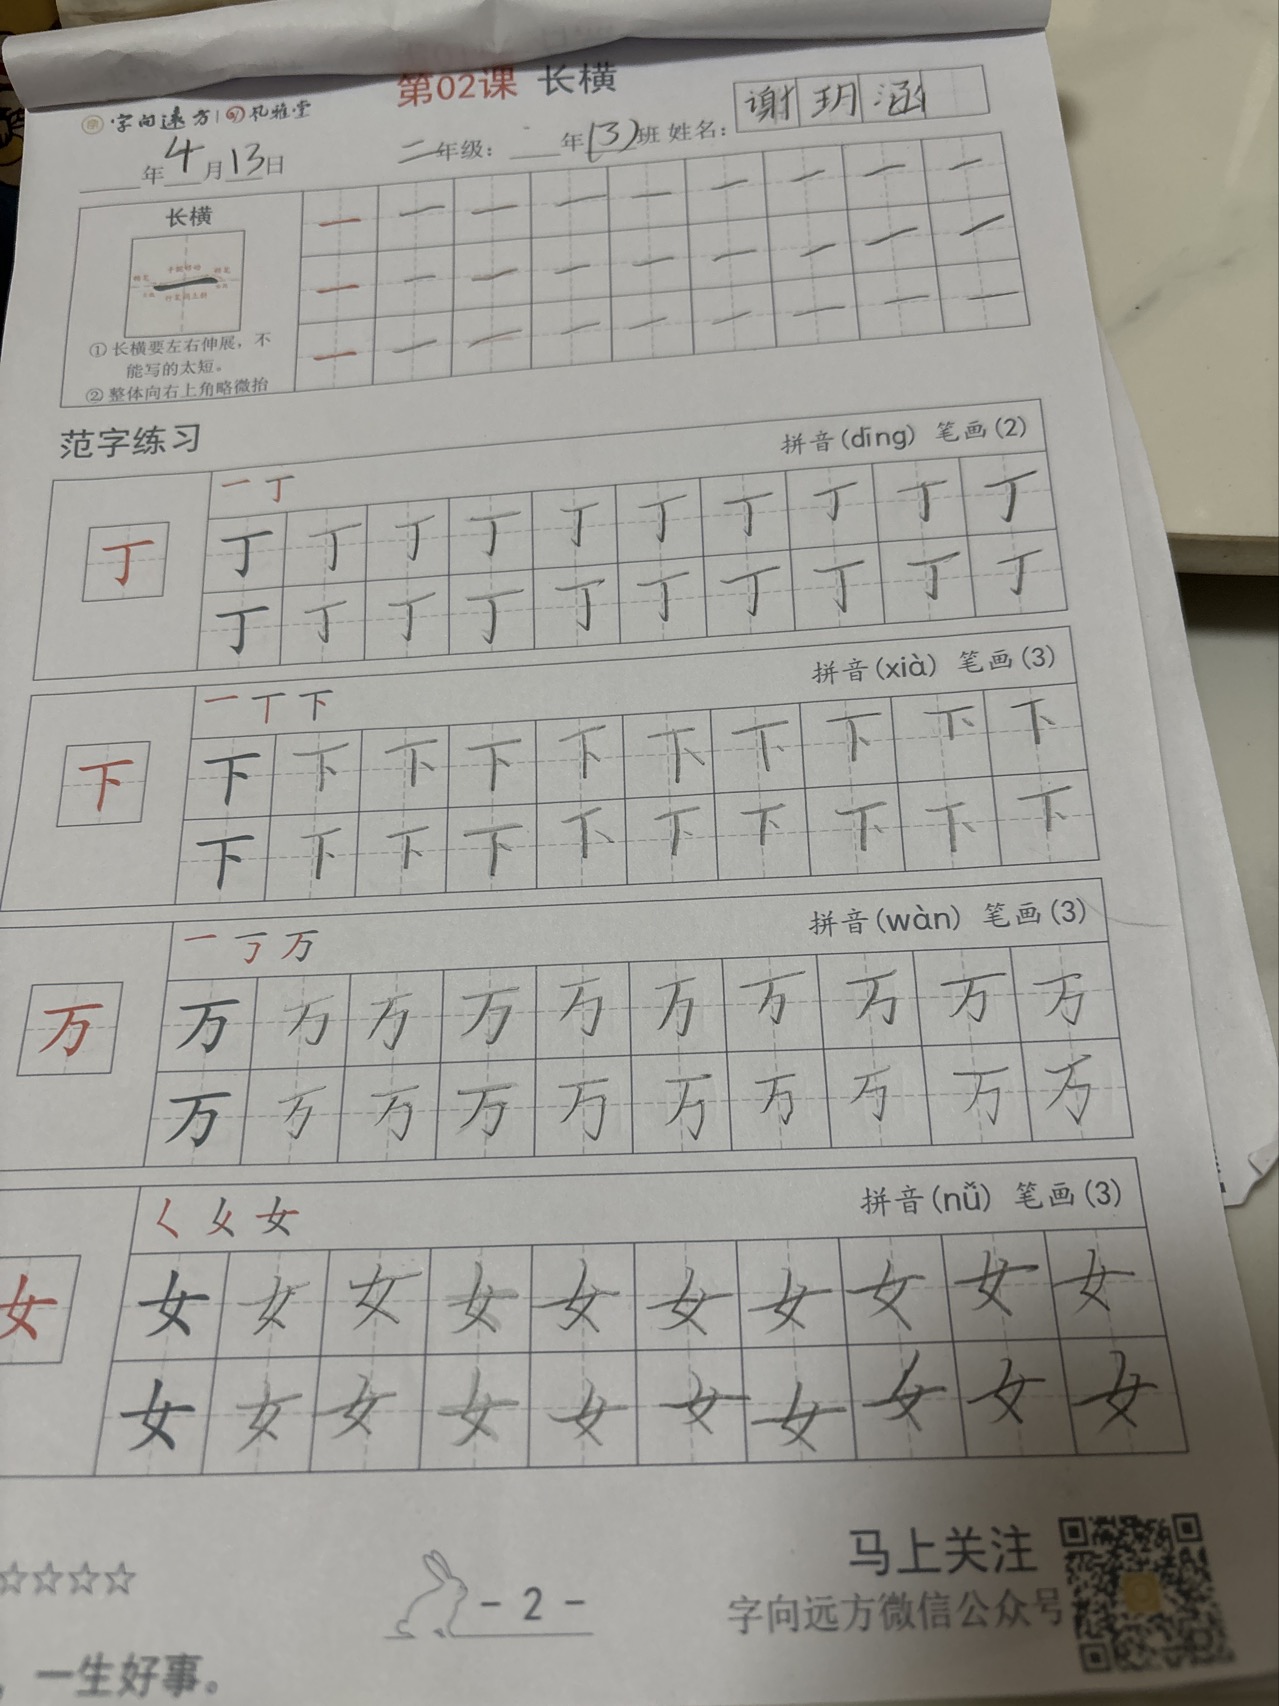 第02课 长横
字向远方 | 礼雅堂
年4月13日 二年级：年(3)班 姓名：谢玥涵
长横
一 一 一 一 一 一 一 一 一
一 一 一 一 一 一 一 一 一
一 一 一 一 一 一 一 一 一
①长横要左右伸展，不
能写的太短。
②整体向右上角略微抬
范字练习
一 丁 拼音(dīng) 笔画(2)
丁
丁 丁 丁 丁 丁 丁 丁 丁 丁 丁
丁 丁 丁 丁 丁 丁 丁 丁 丁 丁
一 丅 下 拼音(xià) 笔画(3)
下
下 下 下 下 下 下 下 下 下 下
下 下 下 下 下 下 下 下 下 下
一 丂 万 拼音(wàn) 笔画(3)
万
万 万 万 万 万 万 万 万 万 万
万 万 万 万 万 万 万 万 万 万
女 拼音(nǚ) 笔画(3)
女
女 女 女 女 女 女 女 女 女 女
女 女 女 女 女 女 女 女 女 女
☆☆☆☆
- 2 -
马上关注
字向远方微信公众号
，一生好事。